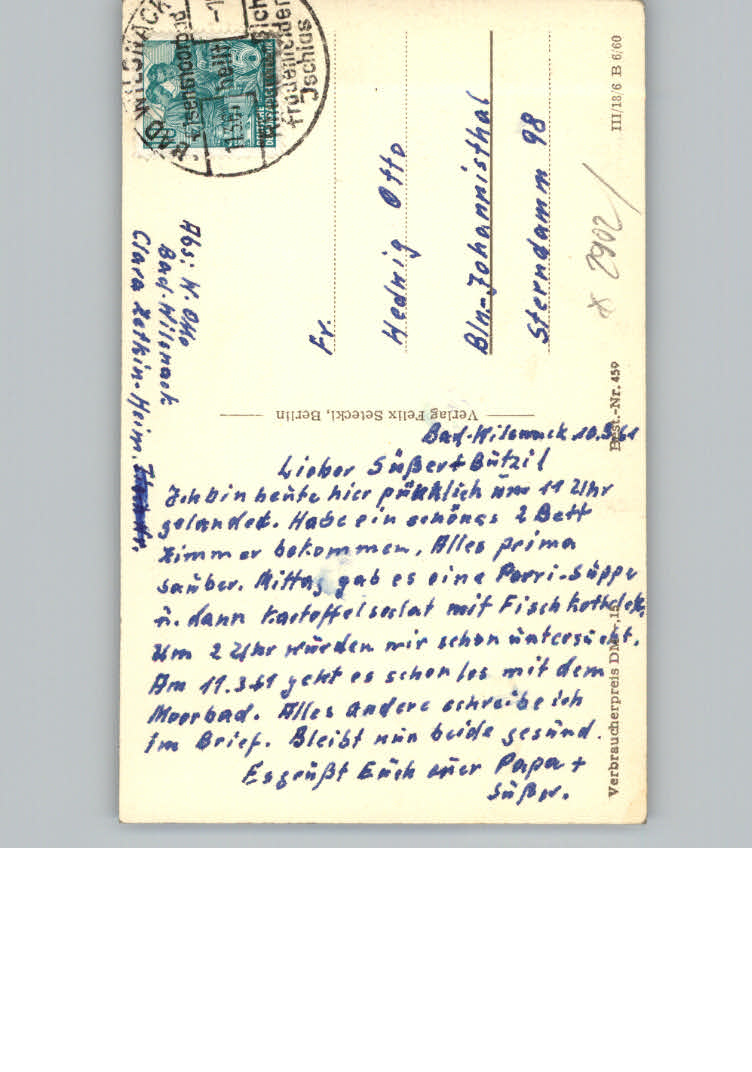 BAD WILSNACK
Eisenmoorbad
heilt
Frauenleiden
Ischias
Fr.
Hedwig Otto
Bln.-Johannisthal
Sterndamm 98
III/18/6 B 6/60
x 2902/
Abs: W. Otto
Bad-Wilsnack
Clara Zetkin-Heim.
Verlag Felix Setecki, Berlin
Best.-Nr. 459
Verbraucherpreis DM
Bad-Wilsnack 10.3.61
Lieber Süßer + Bützil
Ich bin heute hier pünklich üm 11 Uhr
gelandet. Habe ein schönes 2 Bett
Zimmer bekommen. Alles prima
sauber. Mittag gab es eine Porri-Süppe
ü. dann Kartoffelsalat mit Fischkottelet.
Um 2 Uhr würden wir schon üntersücht.
Am 11.3.61 geht es schon los mit dem
Moorbad. Alles andere schreibe ich
im Brief. Bleibt nün beide gesünd.
Es grüßt Eüch eüer Papa +
Süßer.